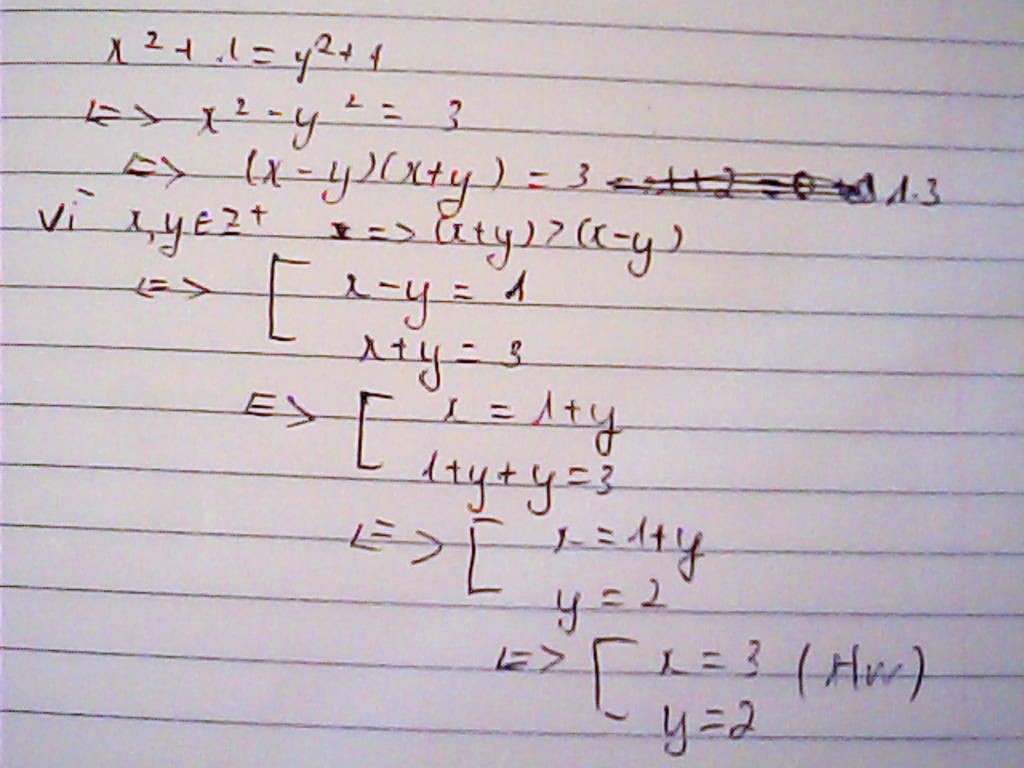 x² + 1 = y² + 1
<=> x² - y² = 3
<=> (x - y)(x+y) = 3 1.3
Vì x,y ∈ Z⁺ => (x+y) > (x-y)
<=> [ x - y = 1
x + y = 3
=> [ x = 1+y
1+y+y = 3
<=> [ x = 1+y
y = 2
<=> [ x = 3
y = 2